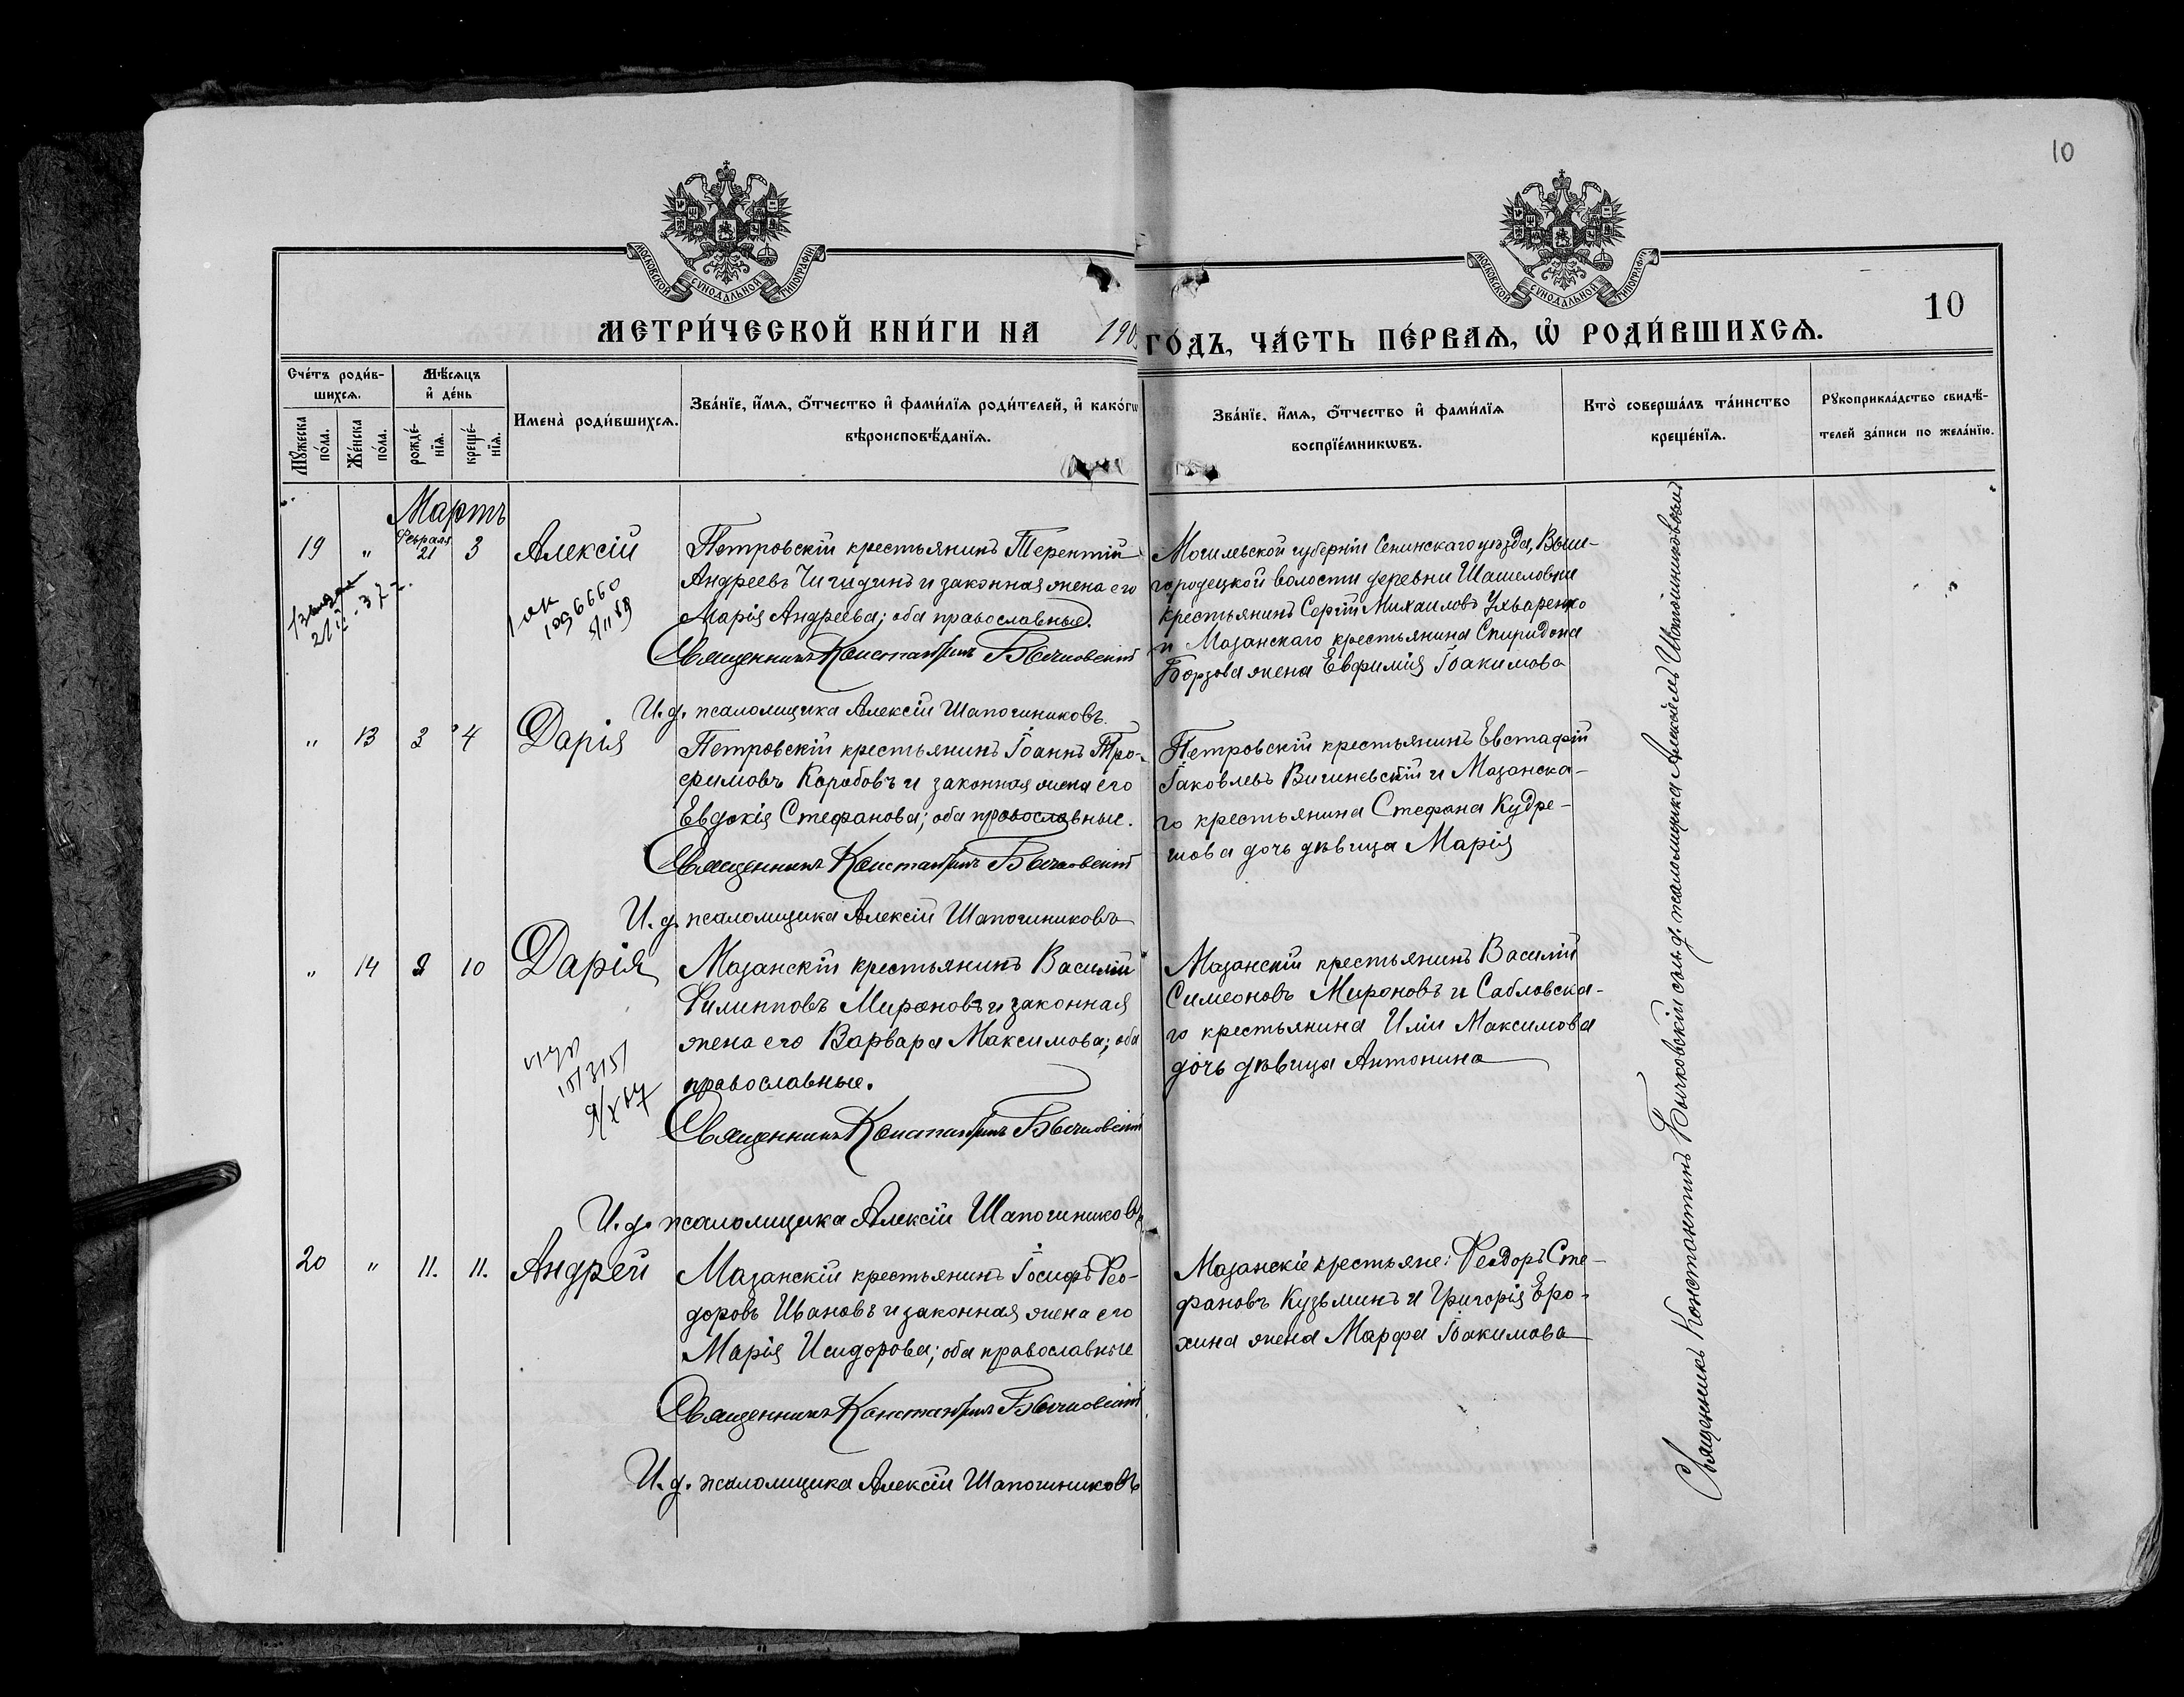 10
МОСКОВСКОЙ СѴНОДАЛЬНОЙ ТИПОГРАФІИ
МОСКОВСКОЙ СѴНОДАЛЬНОЙ ТИПОГРАФІИ
10
МЕТРИ́ЧЕСКОЙ КНИ́ГИ НА 190
ГО́ДЪ, ЧА́СТЬ ПЕ́РВАѦ, Ѡ҆ РОДИ́ВШИХСѦ.
Сче́тъ роди́в-
шихсѧ.
Мꙋжеска по́ла.
Же́нска по́ла.
Мѣ́сѧцъ
и҆ де́нь
рожде́-
нїѧ.
креще́-
нїѧ.
Имена̀ роди́вшихсѧ.
Зва́нїе, и҆́мѧ, ѻ҆́тчество и҆ фами́лїѧ роди́телей, и҆ како́гѡ
вѣроисповѣ́данїѧ.
Зва́нїе, и҆́мѧ, ѻ҆́тчество и҆ фами́лїѧ
воспрїе́мникѡвъ.
Кто̀ соверша́лъ та́инство
креще́нїѧ.
Рꙋкоприкла́дство свидѣ́-
телей за́писи по жела́нїю.
Мартъ
19 " Февраля 21 3 Алексій
Петровскій крестьянинъ Терентій
Андреевъ Чигидинъ и законная жена его
Марія Андреева; оба православные.
Священникъ Константинъ Бычковскій
И. д. псаломщика Алексій Шапошниковъ.
1096660
Могилевской губерніи Сенинскаго уѣзда, Выше-
городецкой волости деревни Шашеловки
крестьянинъ Сергій Михаиловъ
и Мазанскаго крестьянина Спиридона
Борзова жена Евфимія Іоакимова
" 13 3 4 Дарія
Петровскій крестьянинъ Іоаннъ Тро-
фимовъ Коробовъ и законная жена его
Евдокія Стефанова; оба православные.
Священникъ Константинъ Бычковскій
И. д. псаломщика Алексій Шапошниковъ
Петровскій крестьянинъ Евстафій
Іаковлевъ Вишневскій и Мазанска-
го крестьянина Стефана Кудре-
шова дочь дѣвица Марія
" 14 9 10 Дарія
Мазанскій крестьянинъ Василій
Филипповъ Мироновъ и законная
жена его Варвара Максимова; оба
православные.
Священникъ Константинъ Бычковскій
И. д. псаломщика Алексій Шапошниковъ
Мазанскій крестьянинъ Василій
Симеоновъ Мироновъ и Сабловска-
го крестьянина Иліи Максимова
дочь дѣвица Антонина
20 " 11. 11. Андрей
Мазанскій крестьянинъ Іосифъ Ѳео-
доровъ Ивановъ и законная жена его
Марія Исидорова; оба православные
Священникъ Константинъ Бычковскій
И. д. псаломщика Алексій Шапошниковъ
Мазанскіе крестьяне: Ѳеодоръ Сте-
фановъ Кузьминъ и Григорія Еро-
хина жена Марфа Іоакимова
Священникъ Константинъ Бычковскій съ и. д. псаломщика Алексіемъ Шапошниковымъ